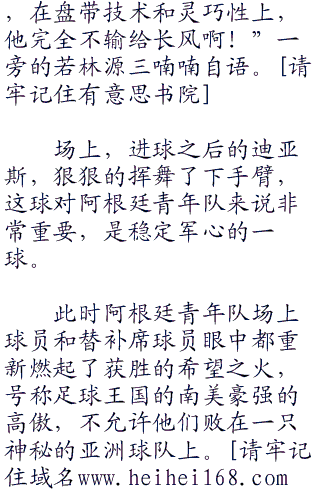 ，在盘带技术和灵巧性上，
他完全不输给长风啊！”一
旁的若林源三喃喃自语。[请
牢记住有意思书院]
场上，进球之后的迪亚
斯，狠狠的挥舞了下手臂，
这球对阿根廷青年队来说非
常重要，是稳定军心的一
球。
此时阿根廷青年队场上
球员和替补席球员眼中都重
新燃起了获胜的希望之火，
号称足球王国的南美豪强的
高傲，不允许他们败在一只
神秘的亚洲球队上。[请牢记
住域名www.heihei168.com